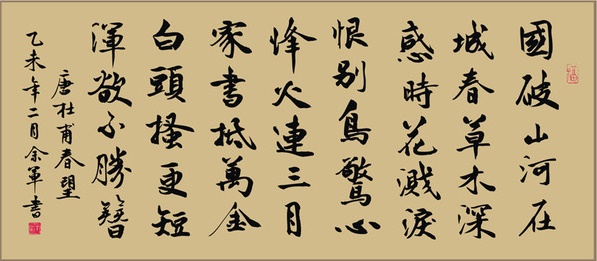 國破山河在
城春草木深
感時花濺淚
恨別鳥驚心
烽火連三月
家書抵萬金
白頭搔更短
渾欲不勝簪
唐杜甫春望
乙未年二月余軍書